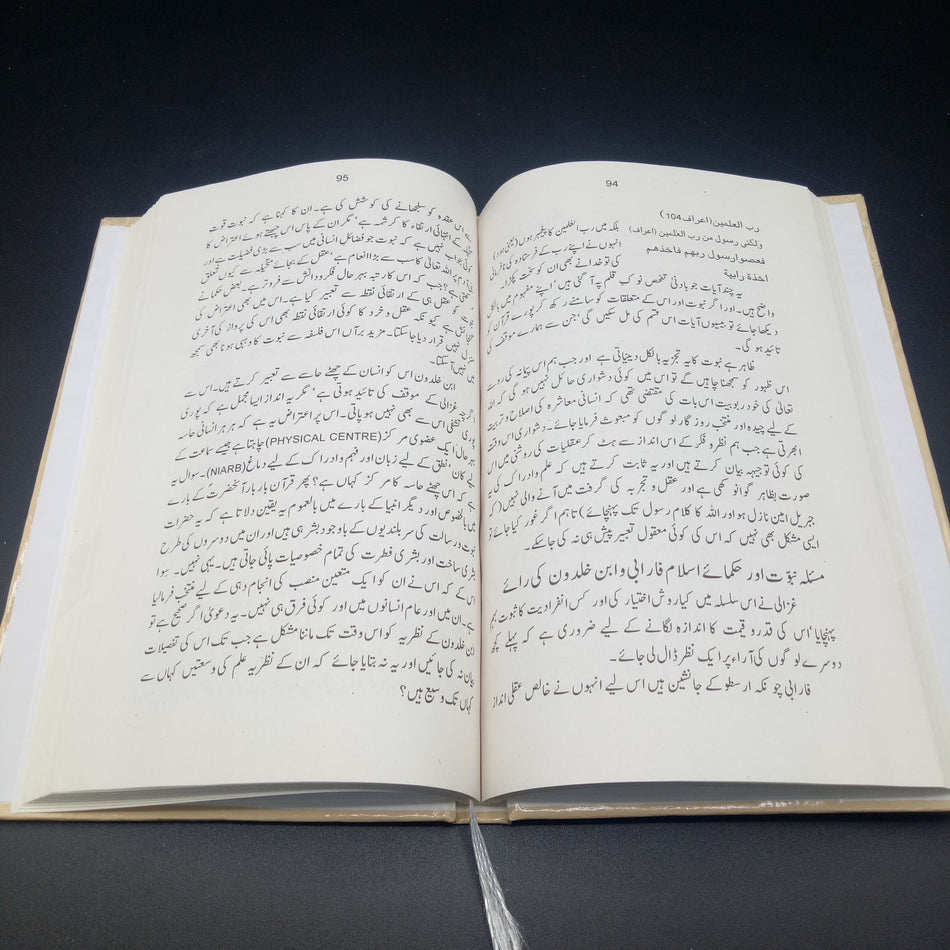 94
رب العلمین (اعراف 104)
ولکنی رسول من رب العلمین (اعراف)
بلکہ میں رب العلمین کا پیغمبر ہوں
فعصوا رسول ربہم فاخذھم
انہوں نے اپنے رب کے فرستادہ کی نافرمانی
اخذۃ رابیۃ
کی تو خدا نے بھی ان کو سخت پکڑا۔
یہ چند آیات جو بادنیٰ تفحص نوک قلم پہ آ گئی ہیں' اپنے مفہوم میں بالکل
واضح ہیں۔ اور اگر نبوت اور اس کے متعلقات کو سامنے رکھ کر پورے قرآن کو
دیکھا جائے تو بیسیوں آیات اس قسم کی مل سکیں گی' جن سے ہمارے موقف کی
تائید ہو گی۔
ظاہر ہے نبوت کا یہ تجزیہ بالکل دینیاتی ہے اور جب ہم اس پیمانہ کی رو سے
اس ظہور کو سمجھنا چاہیں گے تو اس میں کوئی دشواری حائل نہیں ہو گی کہ اللہ
تعالیٰ کی خود ربوبیت اس بات کی مقتضی تھی کہ انسانی معاشرہ کی اصلاح و تربیت
کے لیے چیدہ اور منتخب روزگار لوگوں کو مبعوث فرمایا جائے۔ دشواری اس وقت
ابھرتی ہے جب ہم نظر و فکر کے اس انداز سے ہٹ کر عقلیات کی روشنی میں اس
کی کوئی توجیہہ بیان کرتے ہیں اور یہ ثابت کرتے ہیں کہ علم و ادراک کی یہ
صورت بظاہر گو انوکھی ہے اور عقل و تجربہ کی گرفت میں آنے والی نہیں (کہ
جبریل امین نازل ہو اور اللہ کا کلام رسول تک پہنچائے) تاہم اگر غور کیا جائے تو
ایسی مشکل بھی نہیں کہ اس کی کوئی معقول تعبیر پیش ہی نہ کی جا سکے۔
مسئلہ نبوّت اور حکمائے اسلام فارابی و ابن خلدون کی رائے
غزالی نے اس سلسلہ میں کیا روش اختیار کی اور کس انفرادیت کا ثبوت بہم
پہنچایا' اس کی قدر و قیمت کا اندازہ لگانے کے لیے ضروری ہے کہ پہلے کچھ
دوسرے لوگوں کی آراء پر ایک نظر ڈال لی جائے۔
فارابی چونکہ ارسطو کے جانشین ہیں اس لیے انہوں نے خالص عقلی انداز
95
سے اس عقدہ کو سلجھانے کی کوشش کی ہے۔ ان کا کہنا ہے کہ نبوت قوت
کے انتہائی ارتقاء کا کرشمہ ہے' مگر ان کے پاس اس چبھتے ہوئے اعتراض کا
کوئی جواب نہیں ہے کہ نبوت جو فضائل انسانی میں سب سے بڑی فضیلت ہے اور
اللہ تعالیٰ کا سب سے بڑا انعام ہے' عقل کے بجائے متخیلہ سے کیوں تعلق
ہے؟ جب کہ اس کا رتبہ بہرحال فکر و دانش سے فروتر ہے۔ بعض حکما نے
کو عقل ہی کے ارتقائی نقطہ سے تعبیر کیا ہے۔ اس میں بھی اعتراض کی
گنجائش ہے کیونکہ عقل و خرد کا کوئی ارتقائی نقطہ بھی اس کی پرواز کی آخری
منزل نہیں قرار دیا جا سکتا۔ مزید برآں اس فلسفہ سے نبوت کا وہبی ہونا بھی سمجھ
میں نہیں آ سکتا۔
ابن خلدون اس کو انسان کے چھٹے حاسے سے تعبیر کرتے ہیں۔ اس سے
اگرچہ غزالی کے موقف کی تائید ہوتی ہے' مگر یہ انداز ایسا مجمل ہے کہ پوری
پوری تشفی اس سے بھی نہیں ہو پاتی۔ اس پر اعتراض یہ ہے کہ ہر ہر انسانی حاسہ
بہرحال ایک عضوی مرکز (PHYSICAL CENTRE) چاہتا ہے جیسے سماعت کے
لیے کان' نطق کے لیے زبان اور فہم و ادراک کے لیے دماغ (NIARB)۔ سوال یہ
ہے کہ اس چھٹے حاسہ کا مرکز کہاں ہے؟ پھر قرآن بار بار آنحضرتؐ کے بارے
میں بالخصوص اور دیگر انبیا کے بارے میں بالعموم یہ یقین دلاتا ہے کہ یہ حضرات
نبوت و رسالت کی سربلندیوں کے باوجود بشر ہی ہیں اور ان میں دوسروں کی طرح
بشری ساخت اور بشری فطرت کی تمام خصوصیات پائی جاتی ہیں۔ یہی نہیں۔ سوا
اس کے کہ اس نے ان کو ایک متعین منصب کی انجام دہی کے لیے منتخب فرما لیا
ہے۔ ان میں اور عام انسانوں میں اور کوئی فرق ہی نہیں۔ یہ دعویٰ اگر صحیح ہے تو
ابن خلدون کے نظریہ کو اس وقت تک ماننا مشکل ہے جب تک اس کی تفصیلات
بیان نہ کی جائیں اور یہ نہ بتایا جائے کہ ان کے نظریہ علم کی وسعتیں کہاں سے
کہاں تک وسیع ہیں؟